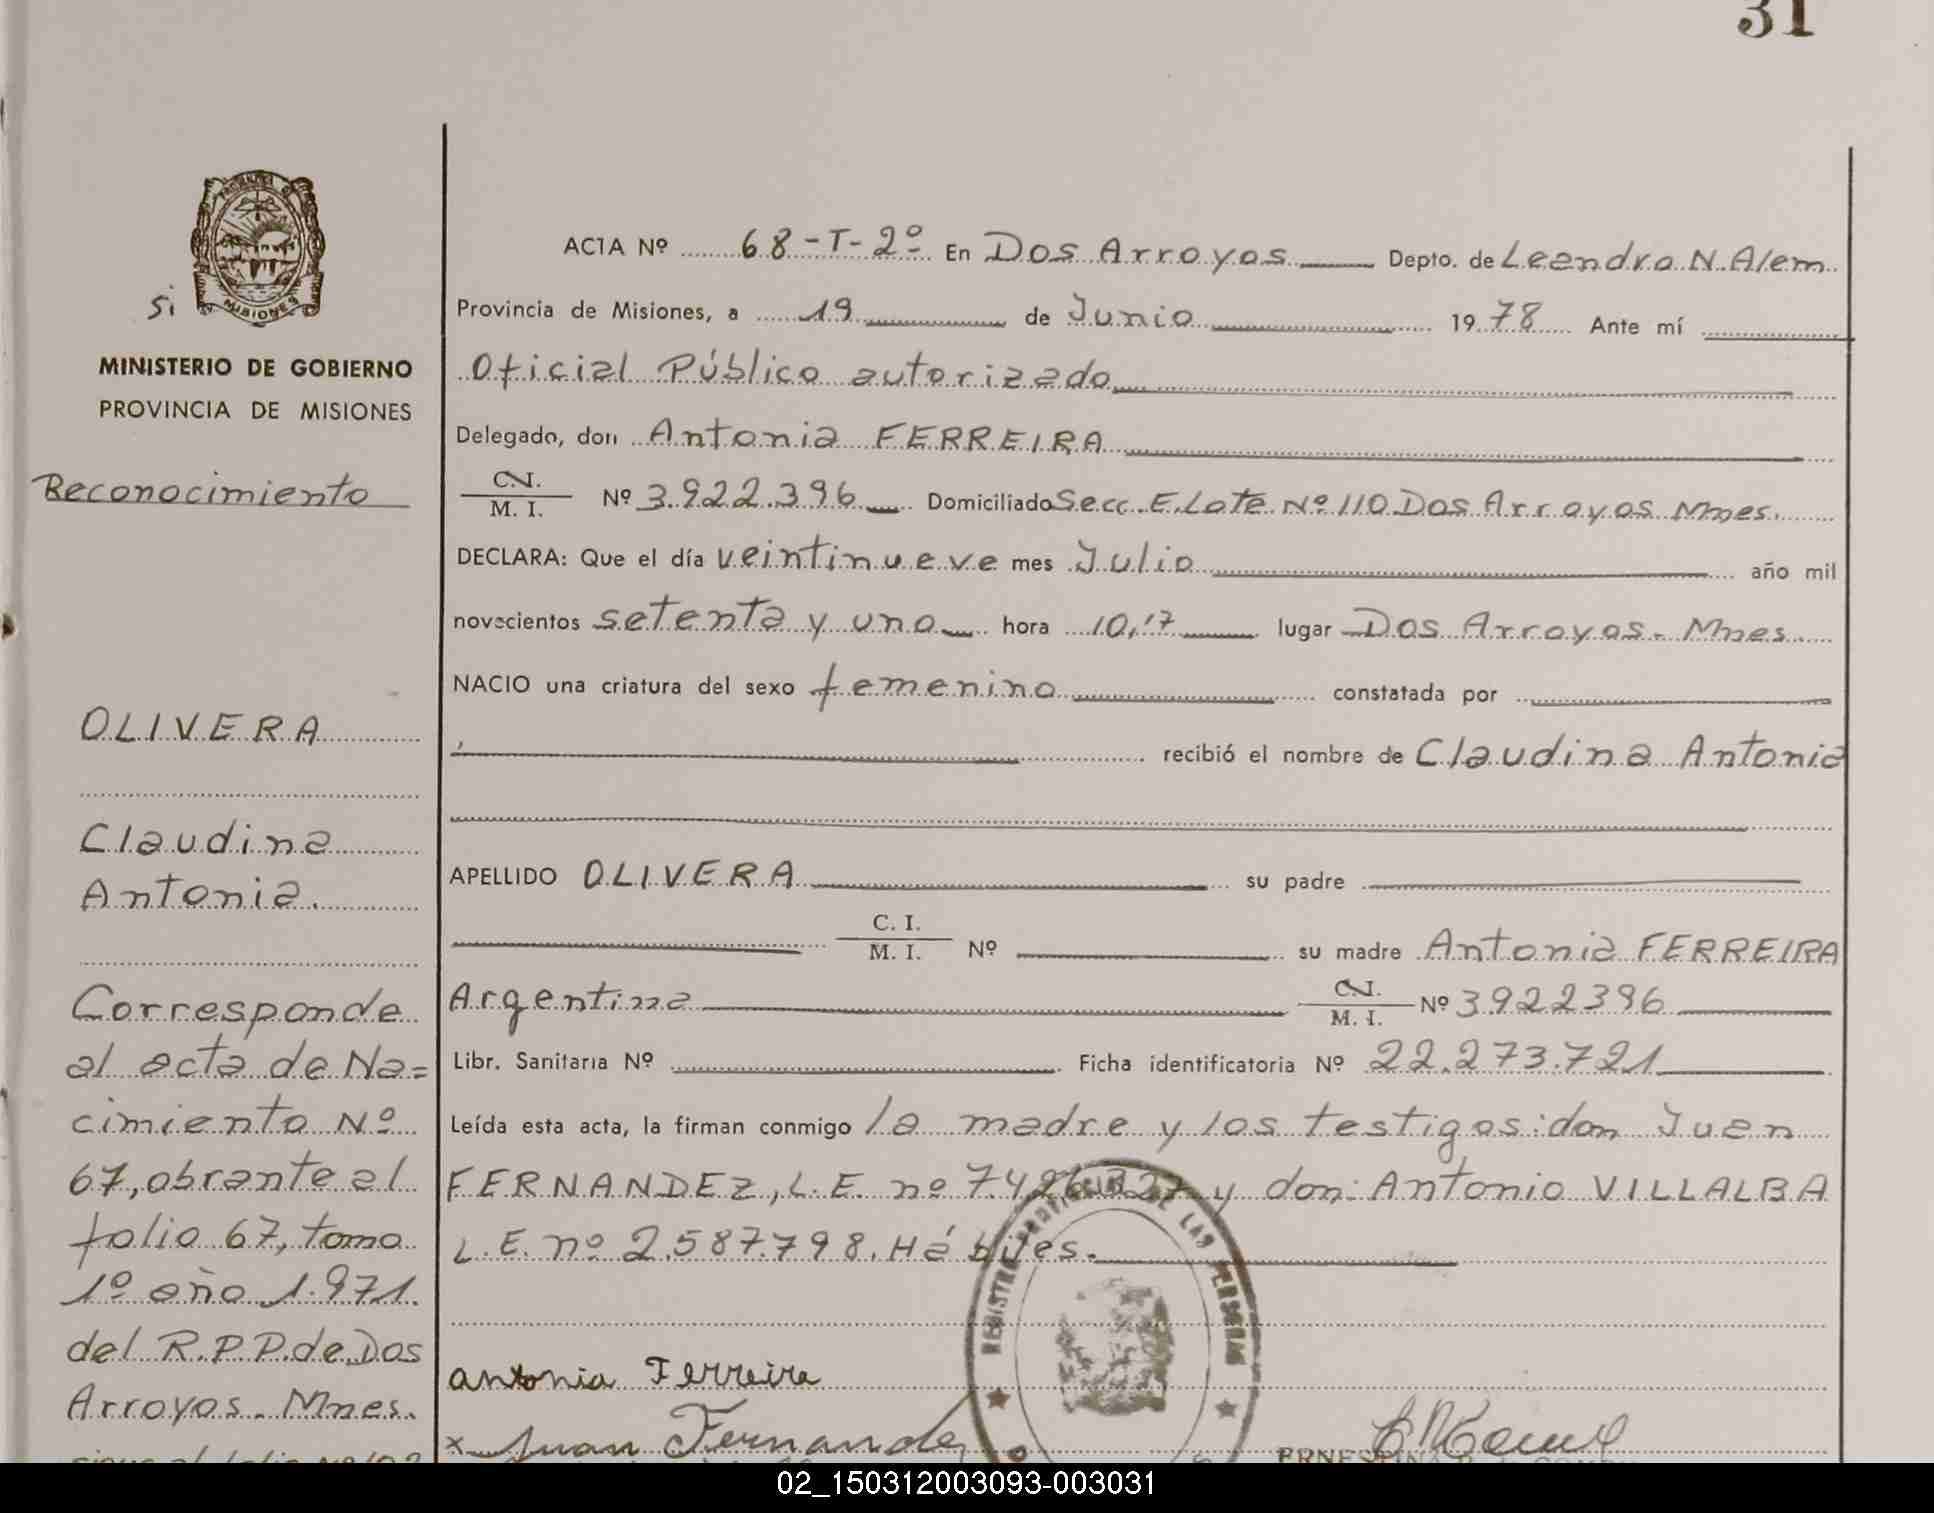 31
PROVINCIA DE
MISIONES
Si
MINISTERIO DE GOBIERNO
PROVINCIA DE MISIONES
Reconocimiento
OLIVERA
Claudina
Antonia.
Corresponde
al acta de Na=
cimiento Nº
67, obrante al
folio 67, tomo
1º año 1.971.
del R.P.P. de Dos
Arroyos. Mnes.
ACTA Nº 68-T-2º En Dos Arroyos Depto. de Leandro N. Alem
Provincia de Misiones, a 19 de Junio 1978 Ante mí
Oficial Público autorizado
Delegado, don Antonia FERREIRA
C.I. M. I. Nº 3.922.396 Domiciliado Secc. E. Lote Nº 110 Dos Arroyos Mnes.
DECLARA: Que el día veintinueve mes Julio año mil
novecientos setenta y uno hora 10,17 lugar Dos Arroyos. Mnes.
NACIO una criatura del sexo femenino constatada por
recibió el nombre de Claudina Antonia
APELLIDO OLIVERA su padre
C. I. M. I. Nº su madre Antonia FERREIRA
Argentina C.I. M. I. Nº 3922396
Libr. Sanitaria Nº Ficha identificatoria Nº 22.273.721
Leída esta acta, la firman conmigo la madre y los testigos: don Juan
FERNANDEZ, L.E. nº 7.426.327 y don: Antonio VILLALBA
L.E. nº 2.587.798. Hábiles.
REGISTRO PROVINCIAL DE LAS PERSONAS
antonia Ferreira
x Juan Fernandez
02_150312003093-003031